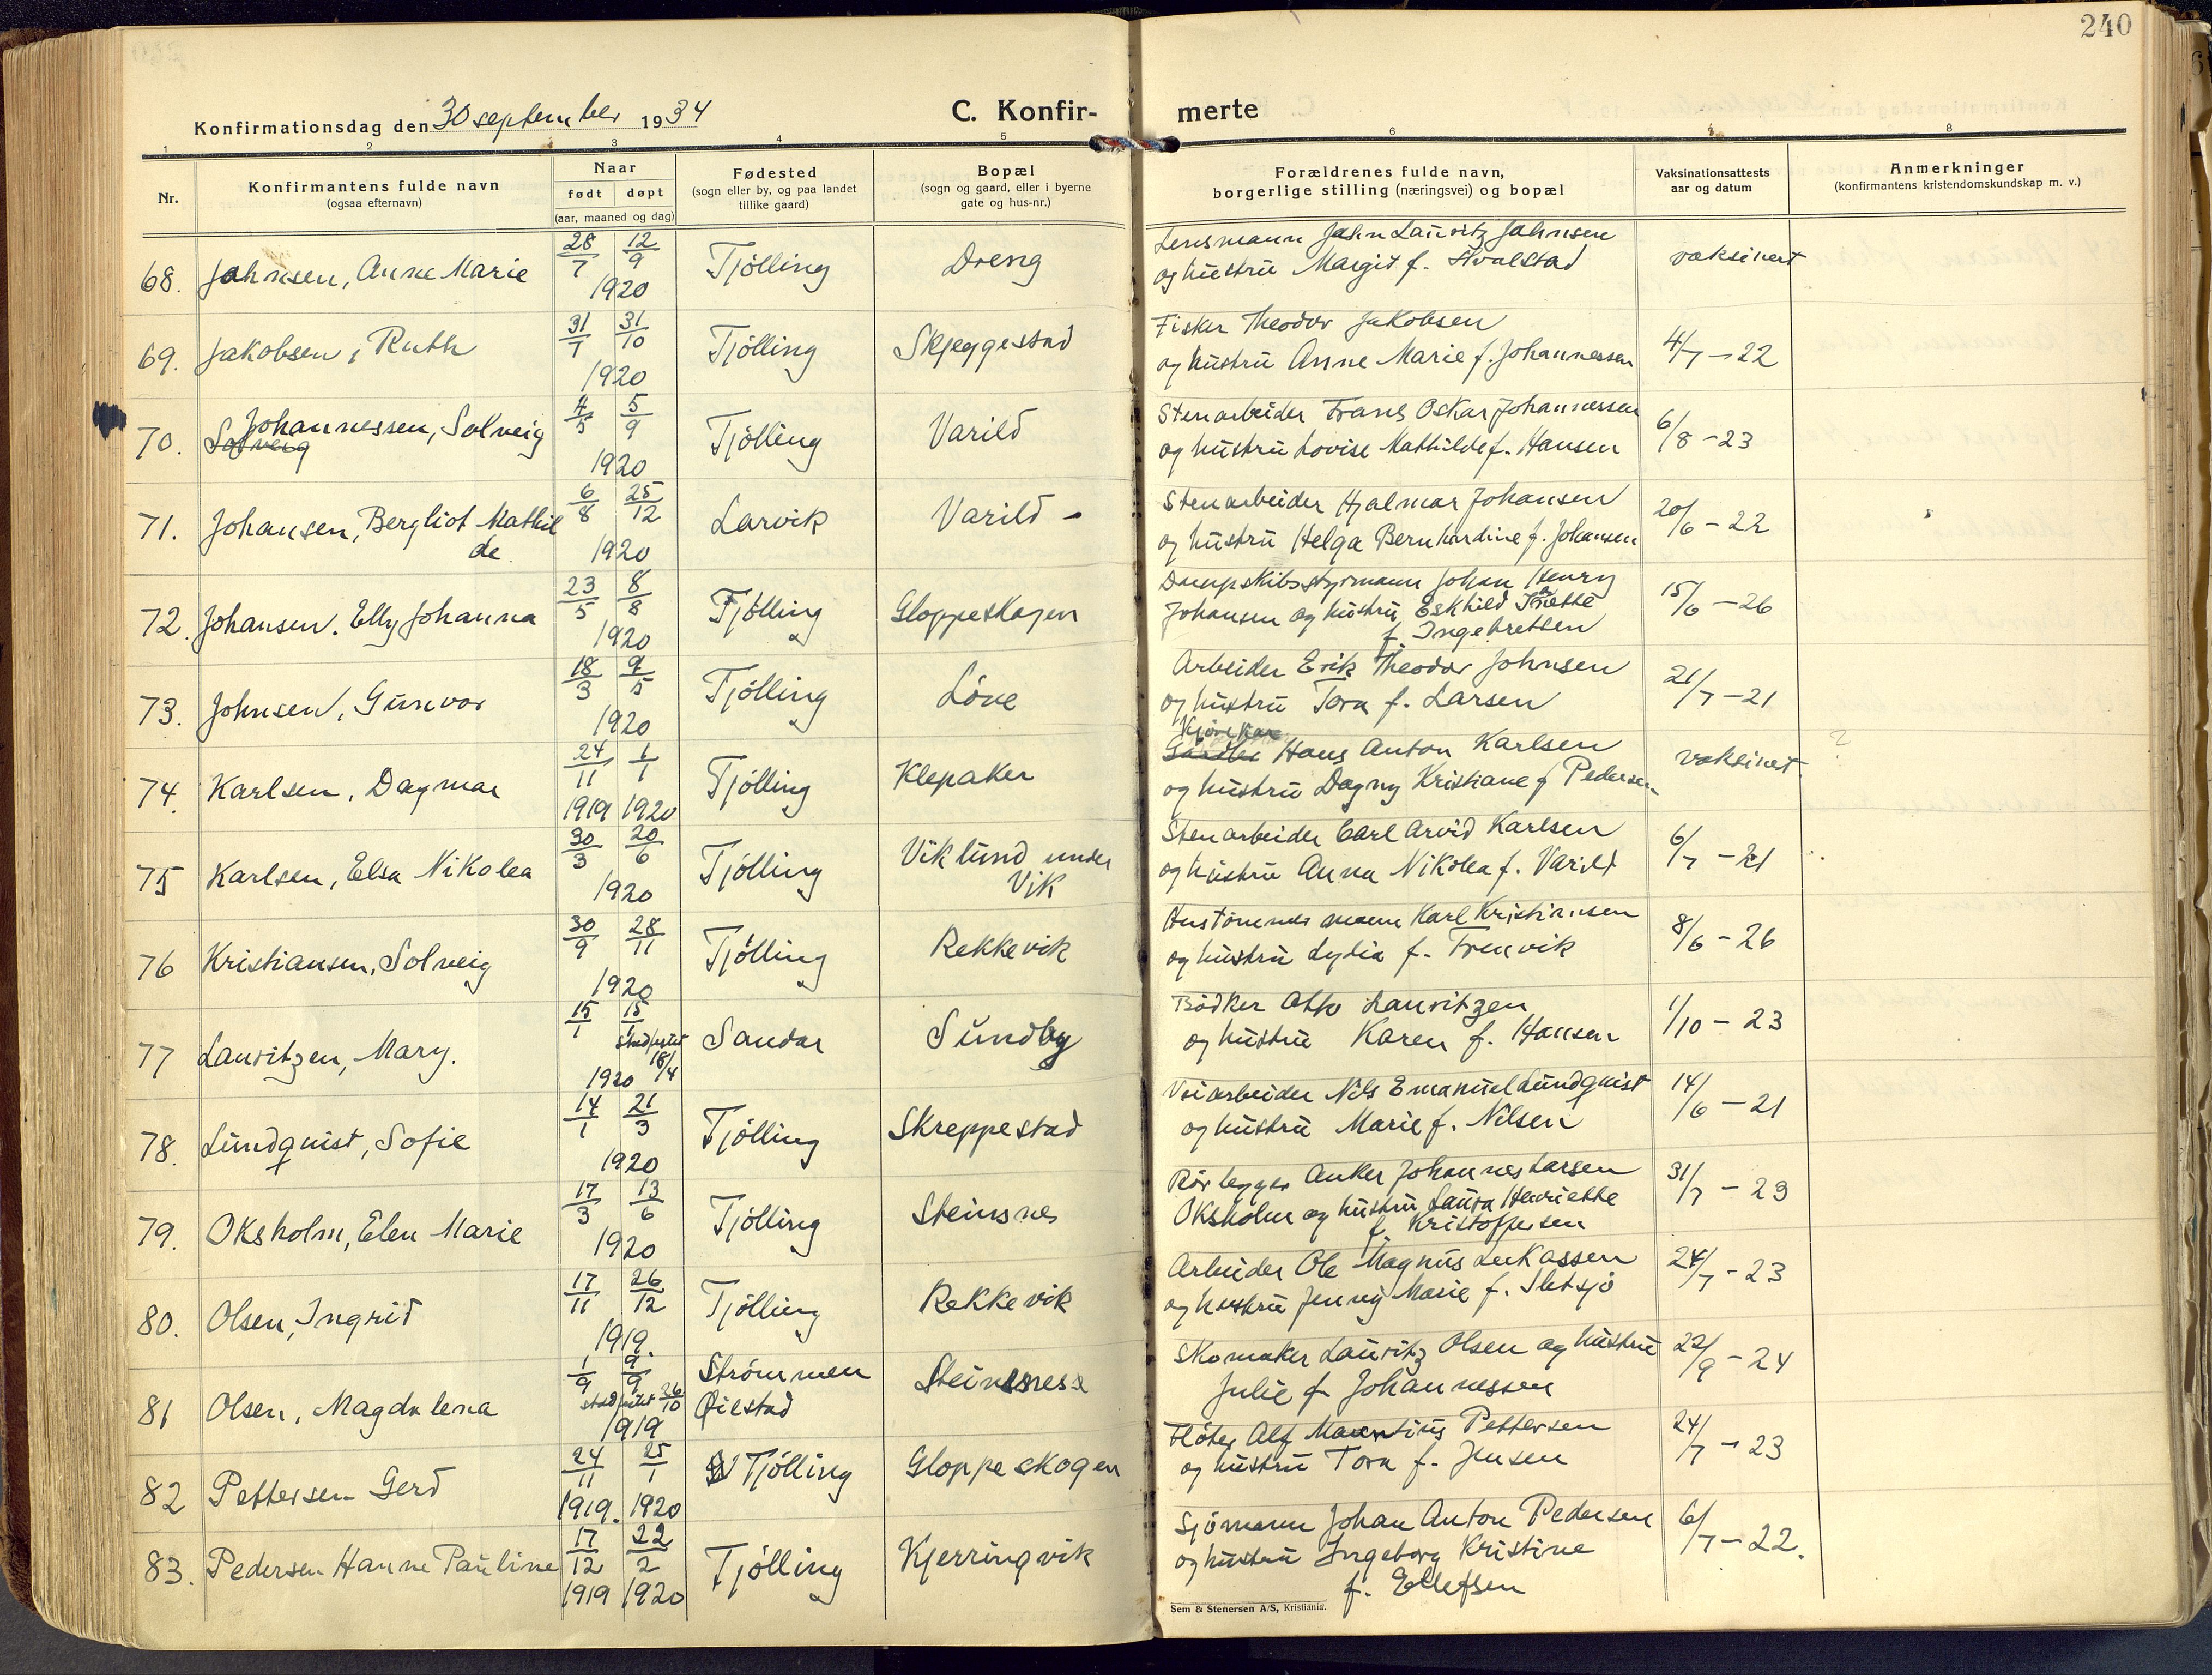 240
Konfirmationsdag den 30 september 1934
C. Konfir-
merte
1 2 3 4 5 6 7 8
Nr.
Konfirmantens fulde navn
(ogsaa efternavn)
Naar
født døpt
(aar, maaned og dag)
Fødested
(sogn eller by, og paa landet
tillike gaard)
Bopæl
(sogn og gaard, eller i byerne
gate og hus-nr.)
Forældrenes fulde navn,
borgerlige stilling (næringsvei) og bopæl
Vaksinationsattests
aar og datum
Anmerkninger
(konfirmantens kristendomskundskap m. v.)
68. Jahnsen, Anne Marie 28/7 12/9 1920 Tjølling Dreng
Lensmann Jahn Lauritz Jahnsen
og hustru Margit f. Hvalstad
vaksinert
69. Jakobsen, Ruth 31/7 31/10 1920 Tjølling Skjeggestad
Fisker Theodor Jakobsen
og hustru Anne Marie f. Johannessen
4/7-22
70. Johannessen, Solveig 4/5 5/9 1920 Tjølling Varild
Solveig
Stenarbeider Frans Oskar Johannessen
og hustru Lovise Mathilde f. Hansen
6/8-23
71. Johansen, Bergliot Mathil
de 6/8 25/12 1920 Larvik Varild -
Stenarbeider Hjalmar Johansen
og hustru Helga Bernhardine f. Johansen
20/6-22
72. Johansen, Elly Johanna 23/5 8/8 1920 Tjølling Gloppeskogen
Dampskibsstyrmann Johan Henry
Johansen og hustru Eskhild
f. Ingebretsen
15/6-26
73. Johnsen, Gunvor 18/3 9/5 1920 Tjølling Löve
Arbeider Erik Theodor Johnsen
og hustru Tora f. Larsen
21/7-21
74. Karlsen, Dagmar 24/11 1/1 1919 1920 Tjølling Klepaker
Kjørekar
Hans Anton Karlsen
og hustru Dagny Kristiane f Pedersen
vaksinert
75 Karlsen, Elsa Nikolea 30/3 20/6 1920 Tjølling Viklund under
Vik
Stenarbeider Carl Arvid Karlsen
og hustru Anna Nikolea f. Varild
6/7-21
76 Kristiansen, Solveig 30/9 28/11 1920 Tjølling Rekkevik
mann Karl Kristiansen
og hustru Lydia f. Trenvik
8/6-26
77 Lauritzen, Mary. 15/1 15/1 stadfestet 18/4 1920 Sandar Sundby
Bødker Otto Lauritzen
og hustru Karen f. Hansen
1/10-23
78. Lundquist, Sofie 14/1 21/3 1920 Tjølling Skreppestad
Veiarbeider Nils Emanuel Lundquist
og hustru Marie f. Nilsen
14/6-21
79. Oksholm, Elen Marie 17/3 13/6 1920 Tjølling Steinsnes
Rörlegger Anker Johannes Larsen
Oksholm og hustru Laura Henriette
f. Kristoffersen
31/7-23
80. Olsen, Ingrid 17/11 26/12 1919. Tjølling Rekkevik
Arbeider Ole Magnus Lukassen
og hustru Jenny Marie f. Sletsjø
24/7-23
81 Olsen, Magdalena 1/9 9/9 stadfestet 26/10 1919 Strömmen
Øiestad Steinsnes
Skomaker Lauritz Olsen og hustru
Julie f. Johannessen
22/9-24
82 Pettersen Gerd 24/11 25/1 1919. 1920 Tjølling Gloppeskogen
Fløter Alf Maurentius Pettersen
og hustru Tora f. Jensen
24/7-23
83. Pedersen Hanne Pauline 17/12 22/2 1919 1920 Tjølling Kjerringvik
Sjömann Johan Anton Pedersen
og hustru Ingeborg Kristine
f. Ellefsen
6/7-22.
Sem & Stenersen A/S, Kristiania.